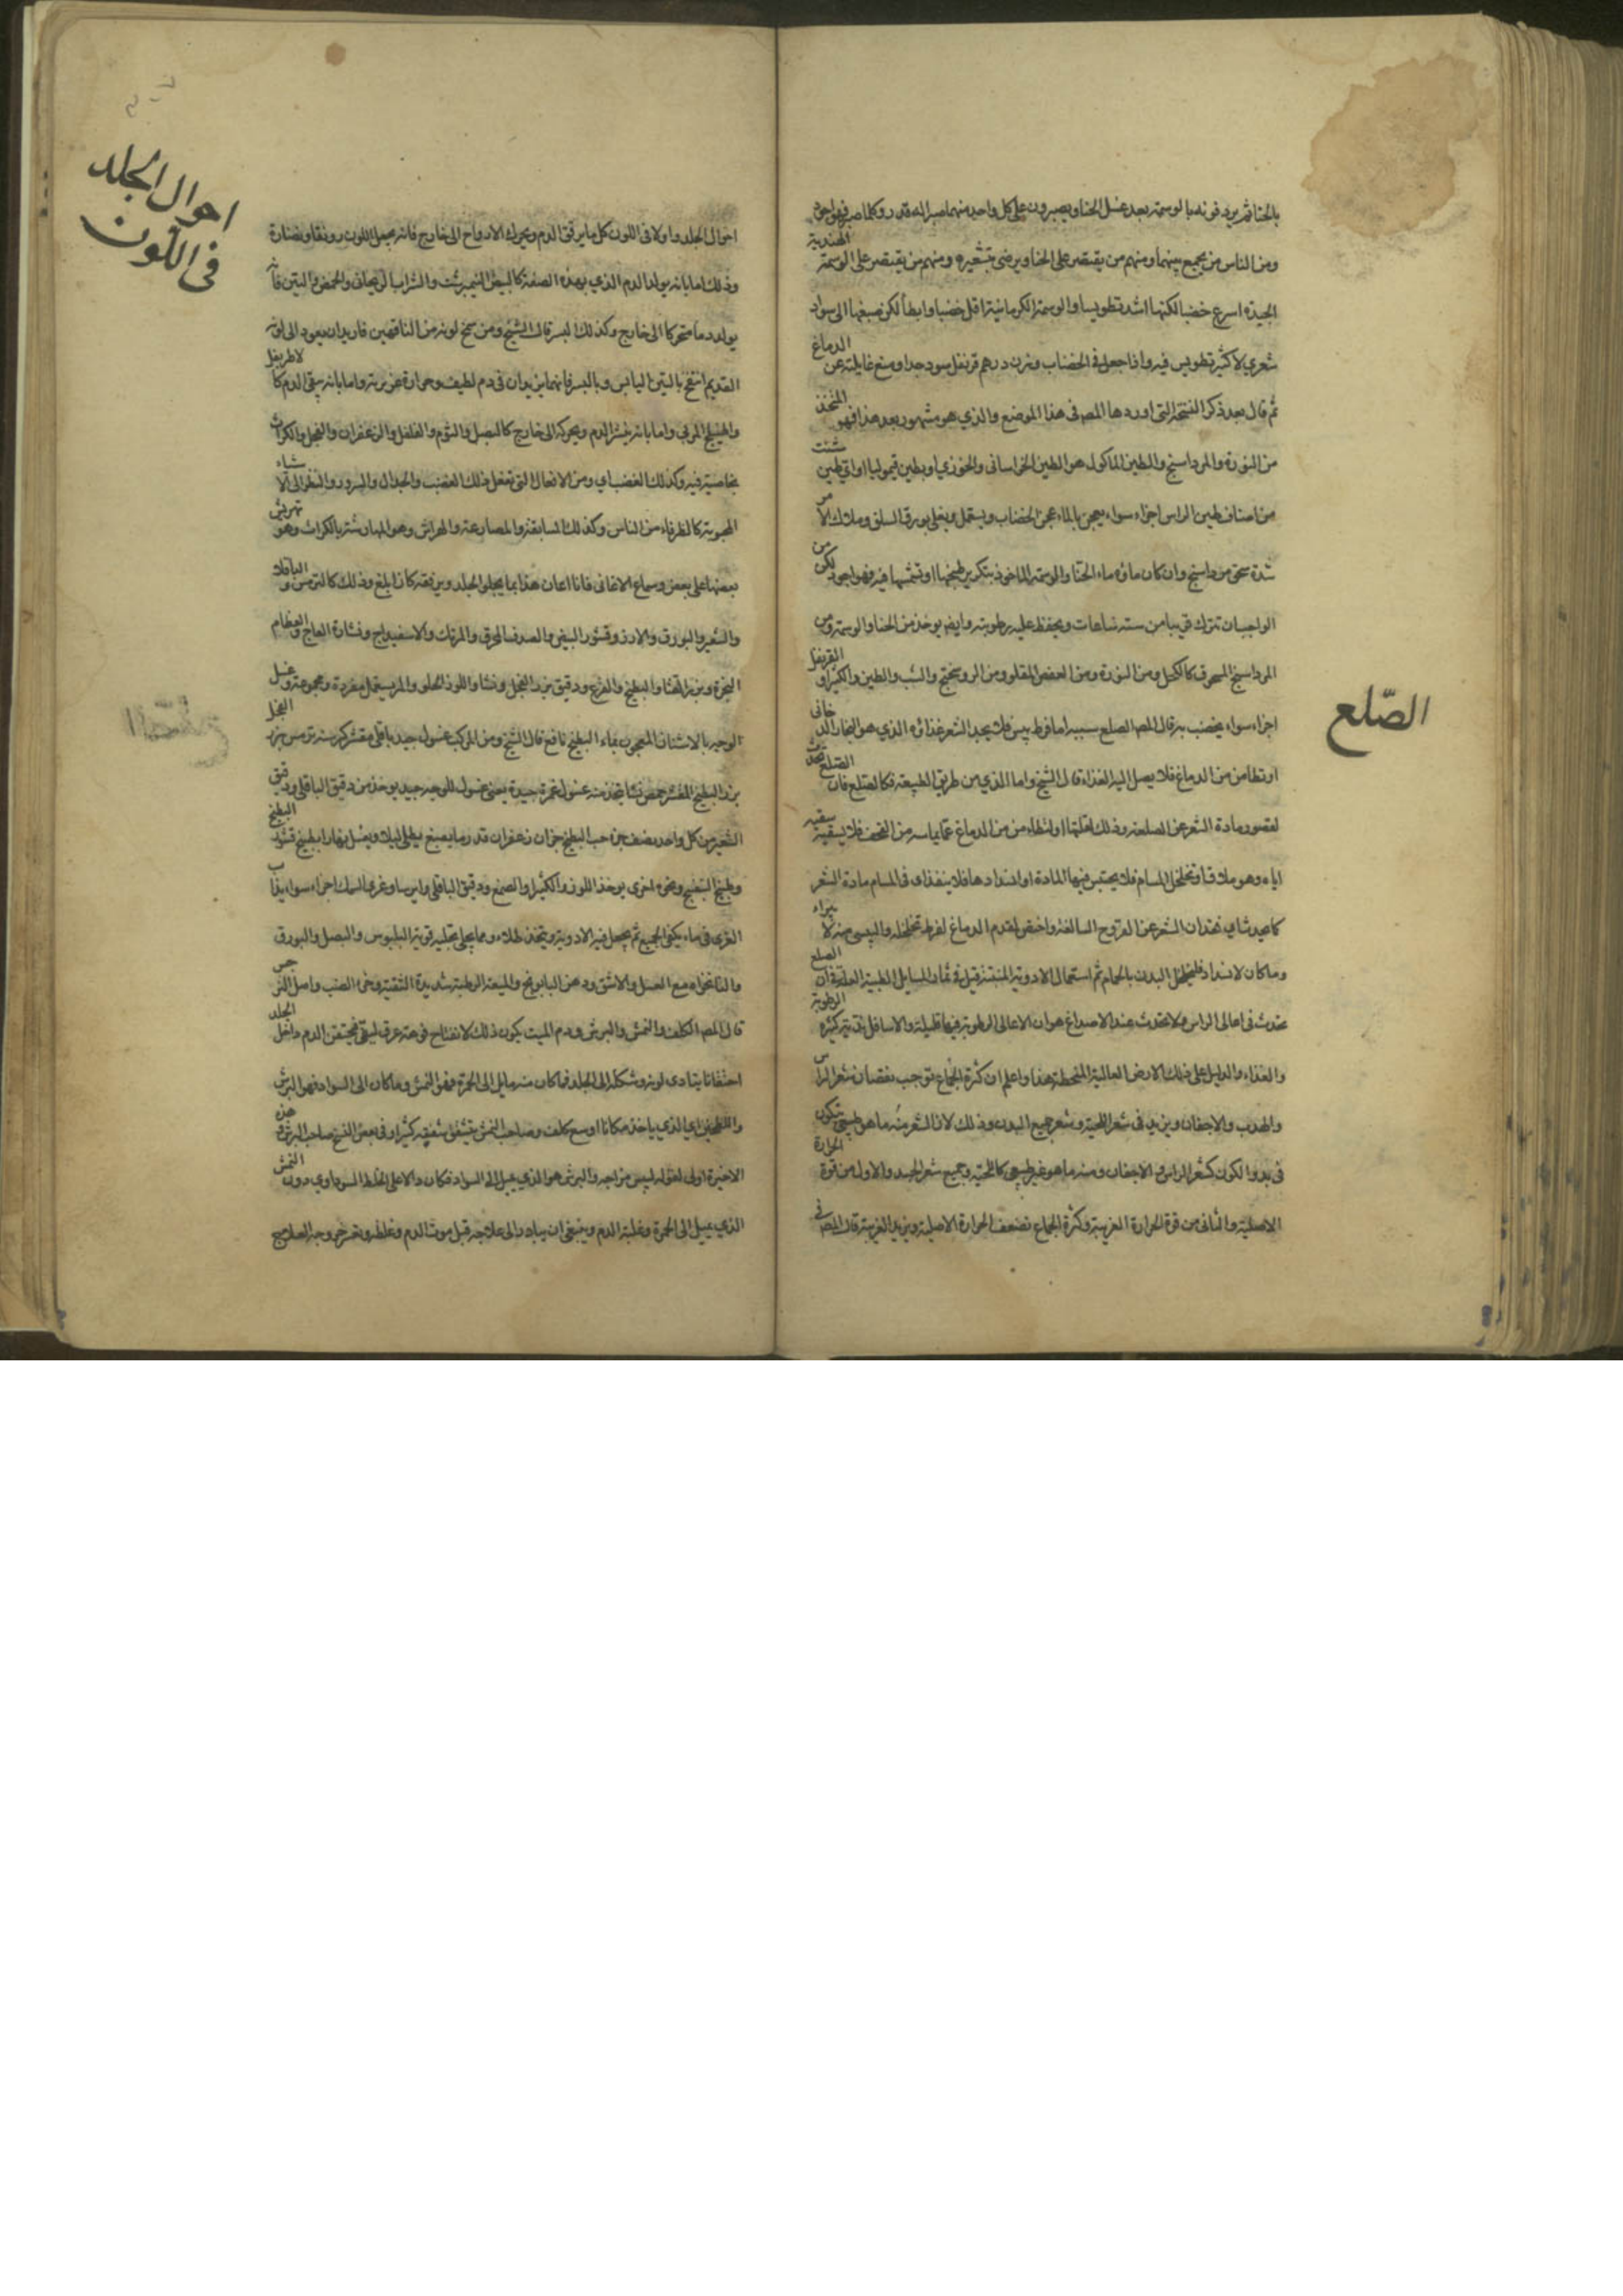 بالحنا ثم يردفونه بالوسمة بعد غسل الحنا ويصبرون على كل واحد منهما صبرا له قدر وكلما صبر فهو اجود
ومن الناس من يجمع بينهما ومنهم من يقتصر على الحنا ويرضى بتشقيره ومنهم من يقتصر على الوسمة الهندية
الجيدة اسرع خضبا لكنها اشد تطويسا والوسمة الكرمانية اقل خضبا وابطأ لكن صبغها الى سواد
شعري لا كثير تطويس فيه واذا جعل في الخضاب وزن درهم قرنفل سود جدا ومنع غايلته عن الدماغ
ثم قال بعد ذكر النسخة التي اوردها المص في هذا الموضع والذي هو مشهور بعد هذا فهو المتخذ
من النورة والمرداسنج والطين الماكول هو الطين الخراساني والخوزي او بطين قيموليا او اي طين شئت
من اصناف طين الراس اجزاء سواء يعجن بالماء عجن الخضاب ويستعمل ويغلى بورق السلق وملاك الامر
شدة سحق مرداسنج وان كان ماؤه ماء الحنا والوسمة الماخوذ بتكرير طبخهما او تشمسهما فيه فهو اجود لكن من
الواجب ان تترك قريبا من ستة ساعات ويحفظ عليه رطوبته وايضا يوخذ من الحنا والوسمة ومن
المرداسنج المسحوق كالكحل ومن النورة ومن العفص المقلو ومن الروسختج والشب والطين والكثيرا والقرنفل
اجزاء سواء يخضب به قال المص الصلع سببه اما فرط يبس فلا يجد الشعر غذاؤه الذي هو البخار الدخاني
او تطامن من الدماغ فلا يصل اليه الغذاء قال الشيخ واما الذي من طريق الطبيعة فكالصلع فان الصلع يحدث
لقصور مادة الشعر عن الصلعة وذلك لقلتها او لتطامن من الدماغ عما يماسه من القحف فلا يسقيه سقيه
اياه وهو ملاق او تخلخل المسام فلا يحتبس فيها المادة او انسدادها فلا ينفذ في المسام مادة الشعر
الصلع
وما كان لانسداد فليخلخل البدن بالحمام ثم استعمال الادوية
تحدث في اعالي الراس ولا تحدث عند الاصداغ هو ان الاعالي الرطوبة فيها قليلة والاسافل كثيرة الرطوبة
والغذاء والدليل على ذلك الارض العالية والمنخفضة هذا واعلم ان كثرة الجماع توجب نقصان شعر الراس
والهدب والاجفان ويزيد في شعر اللحية وشعر جميع البدن وذلك لان الشعر منه ما هو طبيعي تكون
في بدو الكون كشعر الراس والاجفان ومنه ما هو غير طبيعي كاللحية وجميع شعر الجسد والاول من قوة الحرارة
الاصلية والثاني من قوة الحرارة الغريبة وكثرة الجماع تضعف الحرارة الاصلية ويزيد الغريبة قال المص في
الصّلع
احوال الجلد
في اللّون
احوال الجلد واولا في اللون كل ما يرقق الدم ويحرك الارواح الى خارج فانه يجعل اللون رونقا ونضارة
وذلك اما بانه يولد الدم الذي بهذه الصفة كالبيض النيمبرشت والشراب الريحاني والحمص والتين فانه
يولد دما متحركا الى خارج وكذلك البسر قال الشيخ ومن سمج لونه من الناقهين فاريد ان يعود الى لونه
القديم انتفع بالتين اليابس وبالبسر فانهما يزيدان في دم لطيف وحرارة غريزية واما بانه ينقي الدم كالاطريفل
والهليلج المربى واما بانه ينشر الدم ويحركه الى خارج كالبصل والثوم والفلفل والزعفران والفجل والكراث
بخاصية فيه وكذلك الغضب اي ومن الافعال التي تفعل ذلك الغضب والجدال والسرور والنظر الى الاشياء
المحبوبة كالظرفاء من الناس وكذلك المسابقة والمصارعة والهراش وهو المهارشة بالكلاب وهو تهريش
بعضها على بعض وسماع الاغاني فاذا اعان هذا بما يجلو الجلد ويرققه كان ابلغ وذلك كالترمس والباقلا
والشعير والبورق والارز وقشور البيض والصدف المحرق والمرتك والاسفيداج ونشارة العاج والعظام
النخرة وبزر القثا والبطيخ والقرع ودقيق بزر الفجل ونشا واللوز الحلو والمر يستعمل مفردة ومجموعة وغسل
الوجه بالاشنان المعجون بماء البطيخ نافع قال الشيخ ومن المركب غسول جيد باقلي مقشر كرسنة ترمس بزر الفجل
بزر البطيخ المقشر حمص نشا يتخذ منه غسول وغمرة جيدة يعني غسول للوجه جيد يوخذ من دقيق الباقلي ودقيق
الشعير من كل واحد نصف جزء حب البطيخ جزان زعفران قدر ما يصبغ يطلى ليلا ويغسل نهارا بطبيخ قشور البطيخ
وطبيخ البنفسج ونحوه اخرى يوخذ اللوز والكثيرا والصمغ ودقيق الباقلي وايرسا وغرى السمك اجزاء سواء يذاب
الغرى في ماء يكفي الجميع ثم يجعل فيه الادوية ويتخذ طلاء ومما يجلى تجلية قوية البلبوس والبصل والبورق
والنانخواه مع العسل والاشق ودهن البابونج والميعة الرطبة شديدة التنقية وخرء الضب واصل النرجس
قال المص الكلف والنمش والبرش ودم الميت يكون ذلك لانفتاح فوهة عرق ليفي فيحتقن الدم داخل الجلد
احتقانا يتادى لونه وشكله الى الجلد فما كان منه مايل الى الحمرة فهو النمش وما كان الى السواد فهو البرش
واللطخي اي الذي ياخذ مكانا اوسع كلف وصاحب النمش يتشقق شفتيه كثيرا وفي بعض النسخ صاحب البرش
الاخيرة اولى لقوله ليبس مزاجه والبرش هو الذي يميل الى السواد فكان دالا على الخلط السوداوي دون النمش
الذي يميل الى الحمرة وغلبة الدم وينبغي ان يبادر الى علاجه قبل موت الدم وغلظه وتعسر خروجه العلاج